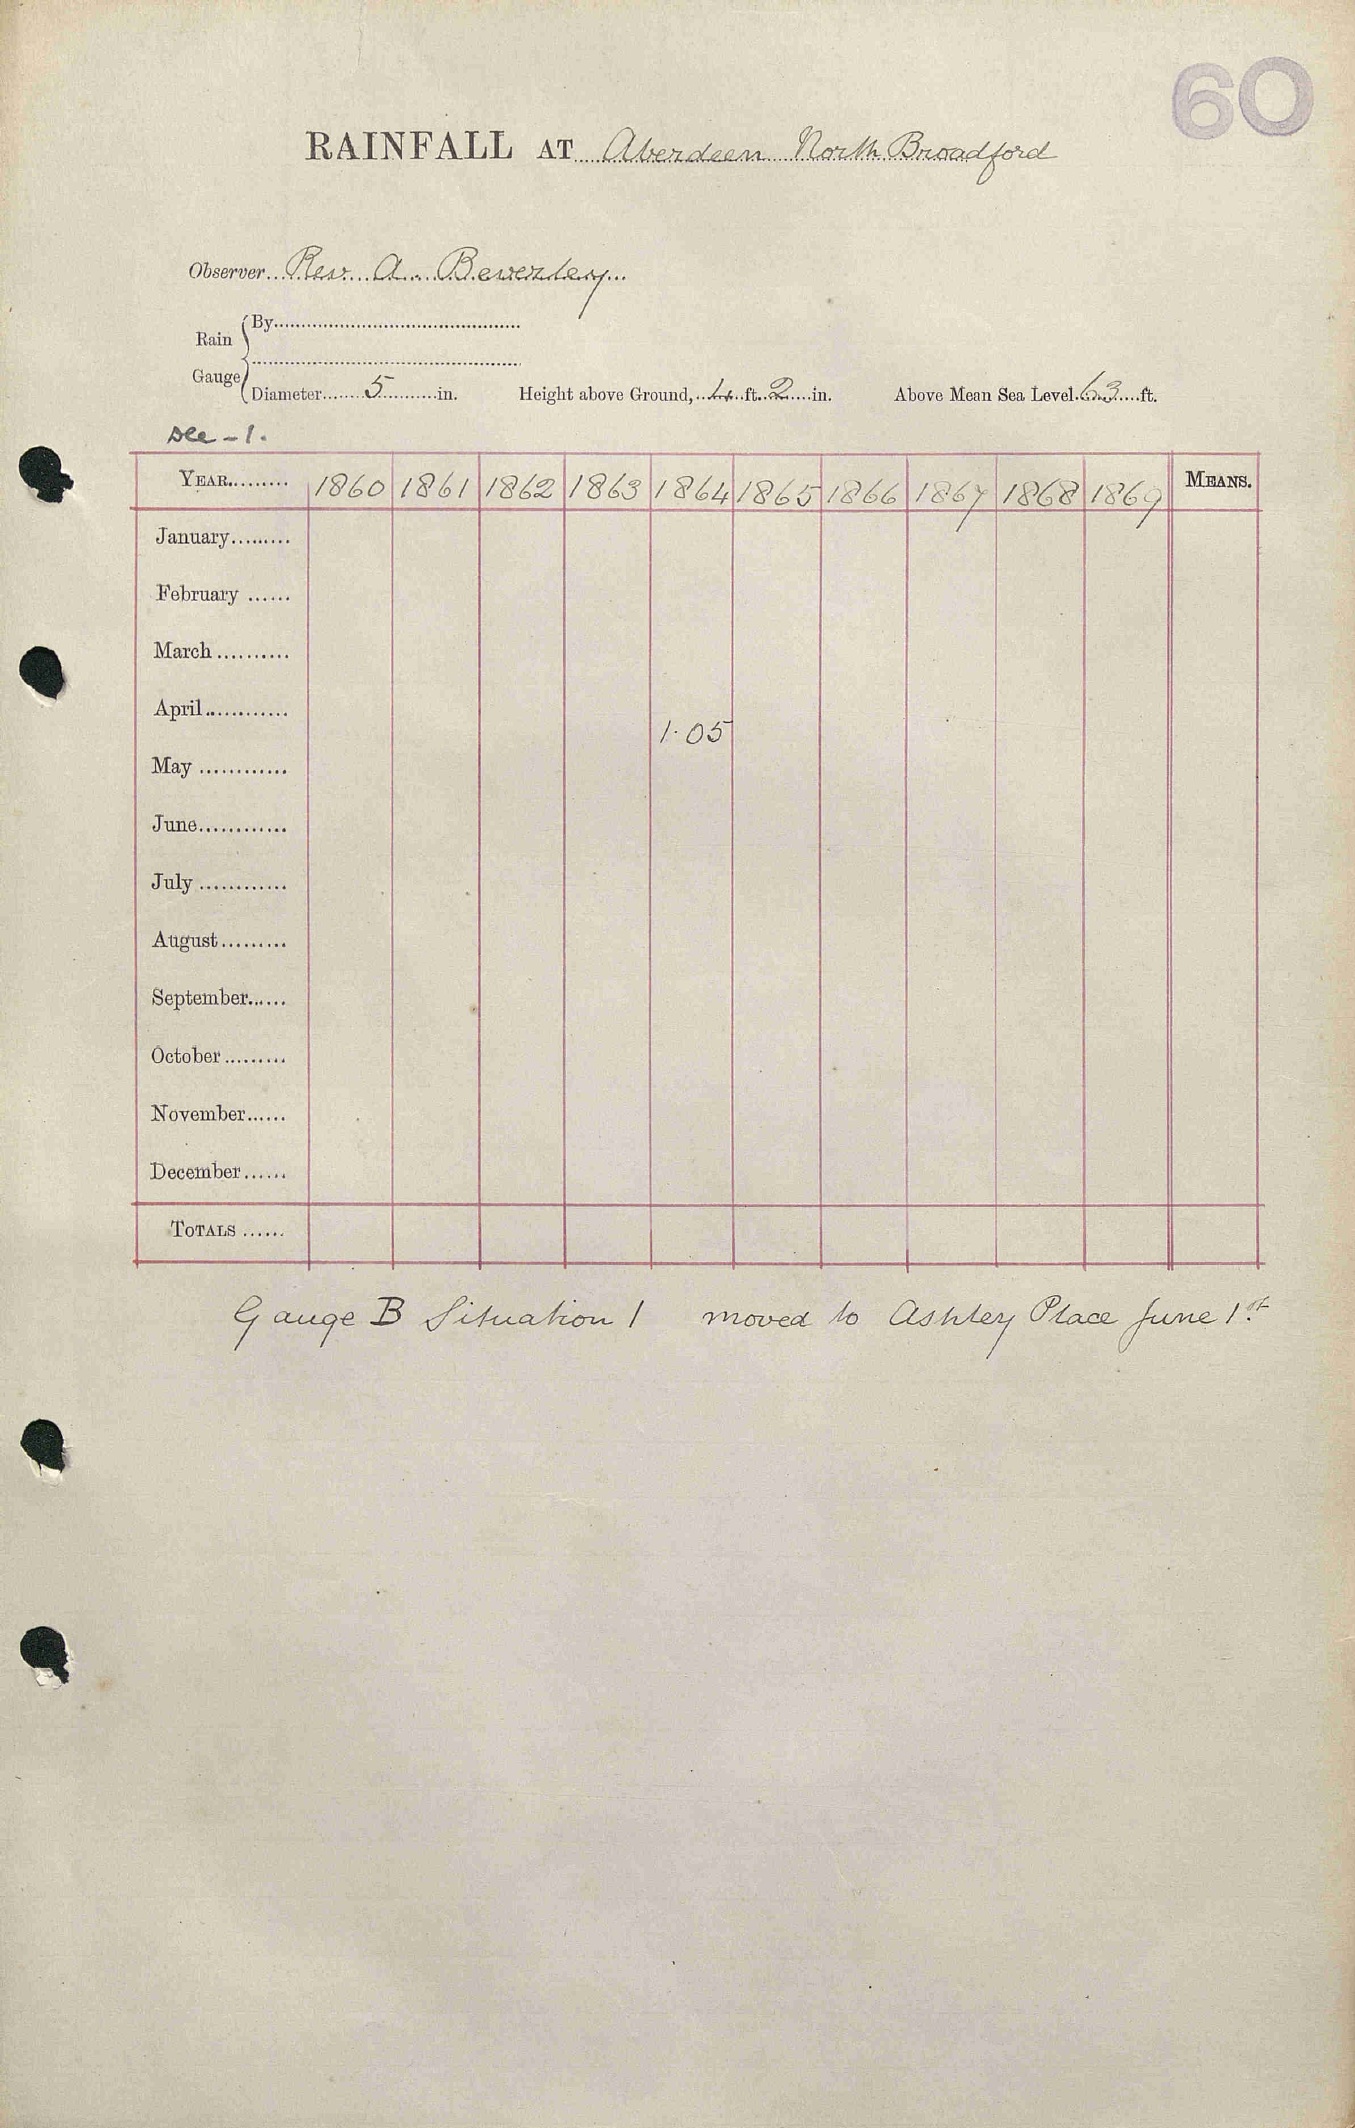 60
RAINFALL AT Aberdeen North Broadford
Observer...Rev. A. Beverley...
Rain Gauge
By
Diameter 5 in. Height above Ground, 4 ft. 2 in. Above Mean Sea Level 63 ft.
Dec - 1.
YEAR 1860 1861 1862 1863 1864 1865 1866 1867 1868 1869 MEANS.
January
February
March
April
1.05
May
June
July
August
September
October
November
December
TOTALS
Gauge B Situation 1 moved to Ashley Place June 1st